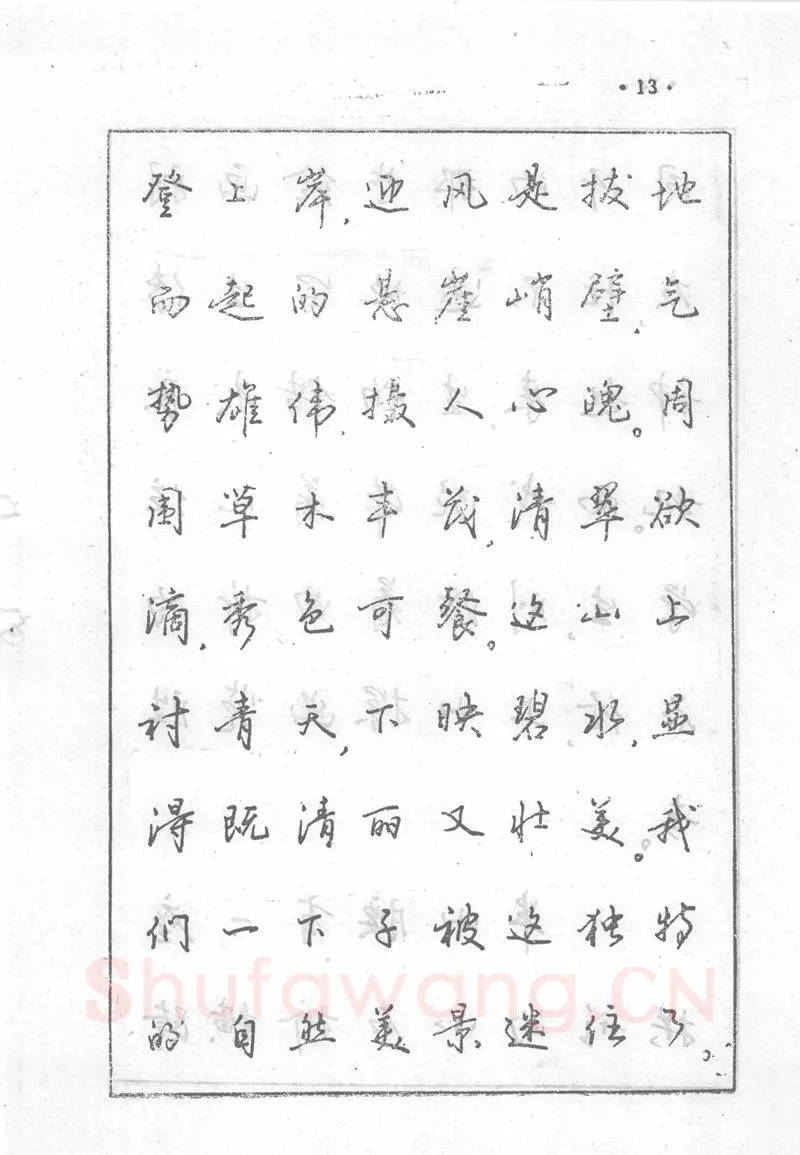 ·13·
登上岸，迎风是拔地
而起的悬崖峭壁，气
势雄伟，摄人心魄。周
围草木丰茂，清翠欲
滴，秀色可餐。这山上
衬青天，下映碧水，显
得既清丽又壮美。我
们一下子被这独特
的自然美景迷住了。
Shufawang.CN